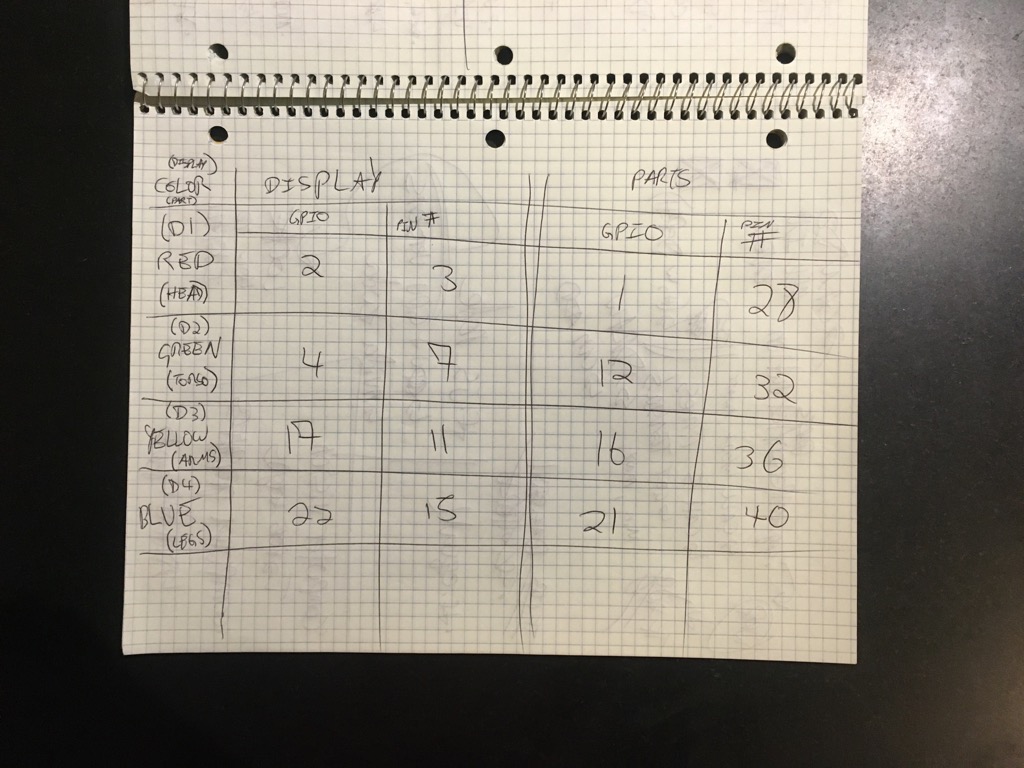 (DISPLAY)
COLOR
(PART)
DISPLAY
PARTS
GPIO
PIN #
GPIO
PIN
#
(D1)
RED
(HEAD)
2
3
1
28
(D2)
GREEN
(TORSO)
4
7
12
32
(D3)
YELLOW
(ARMS)
17
11
16
36
(D4)
BLUE
(LEGS)
22
15
21
40